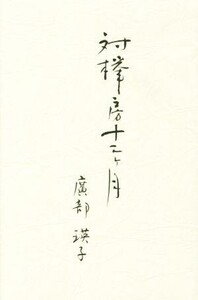 対欅房十二ヶ月
廣部瑛子